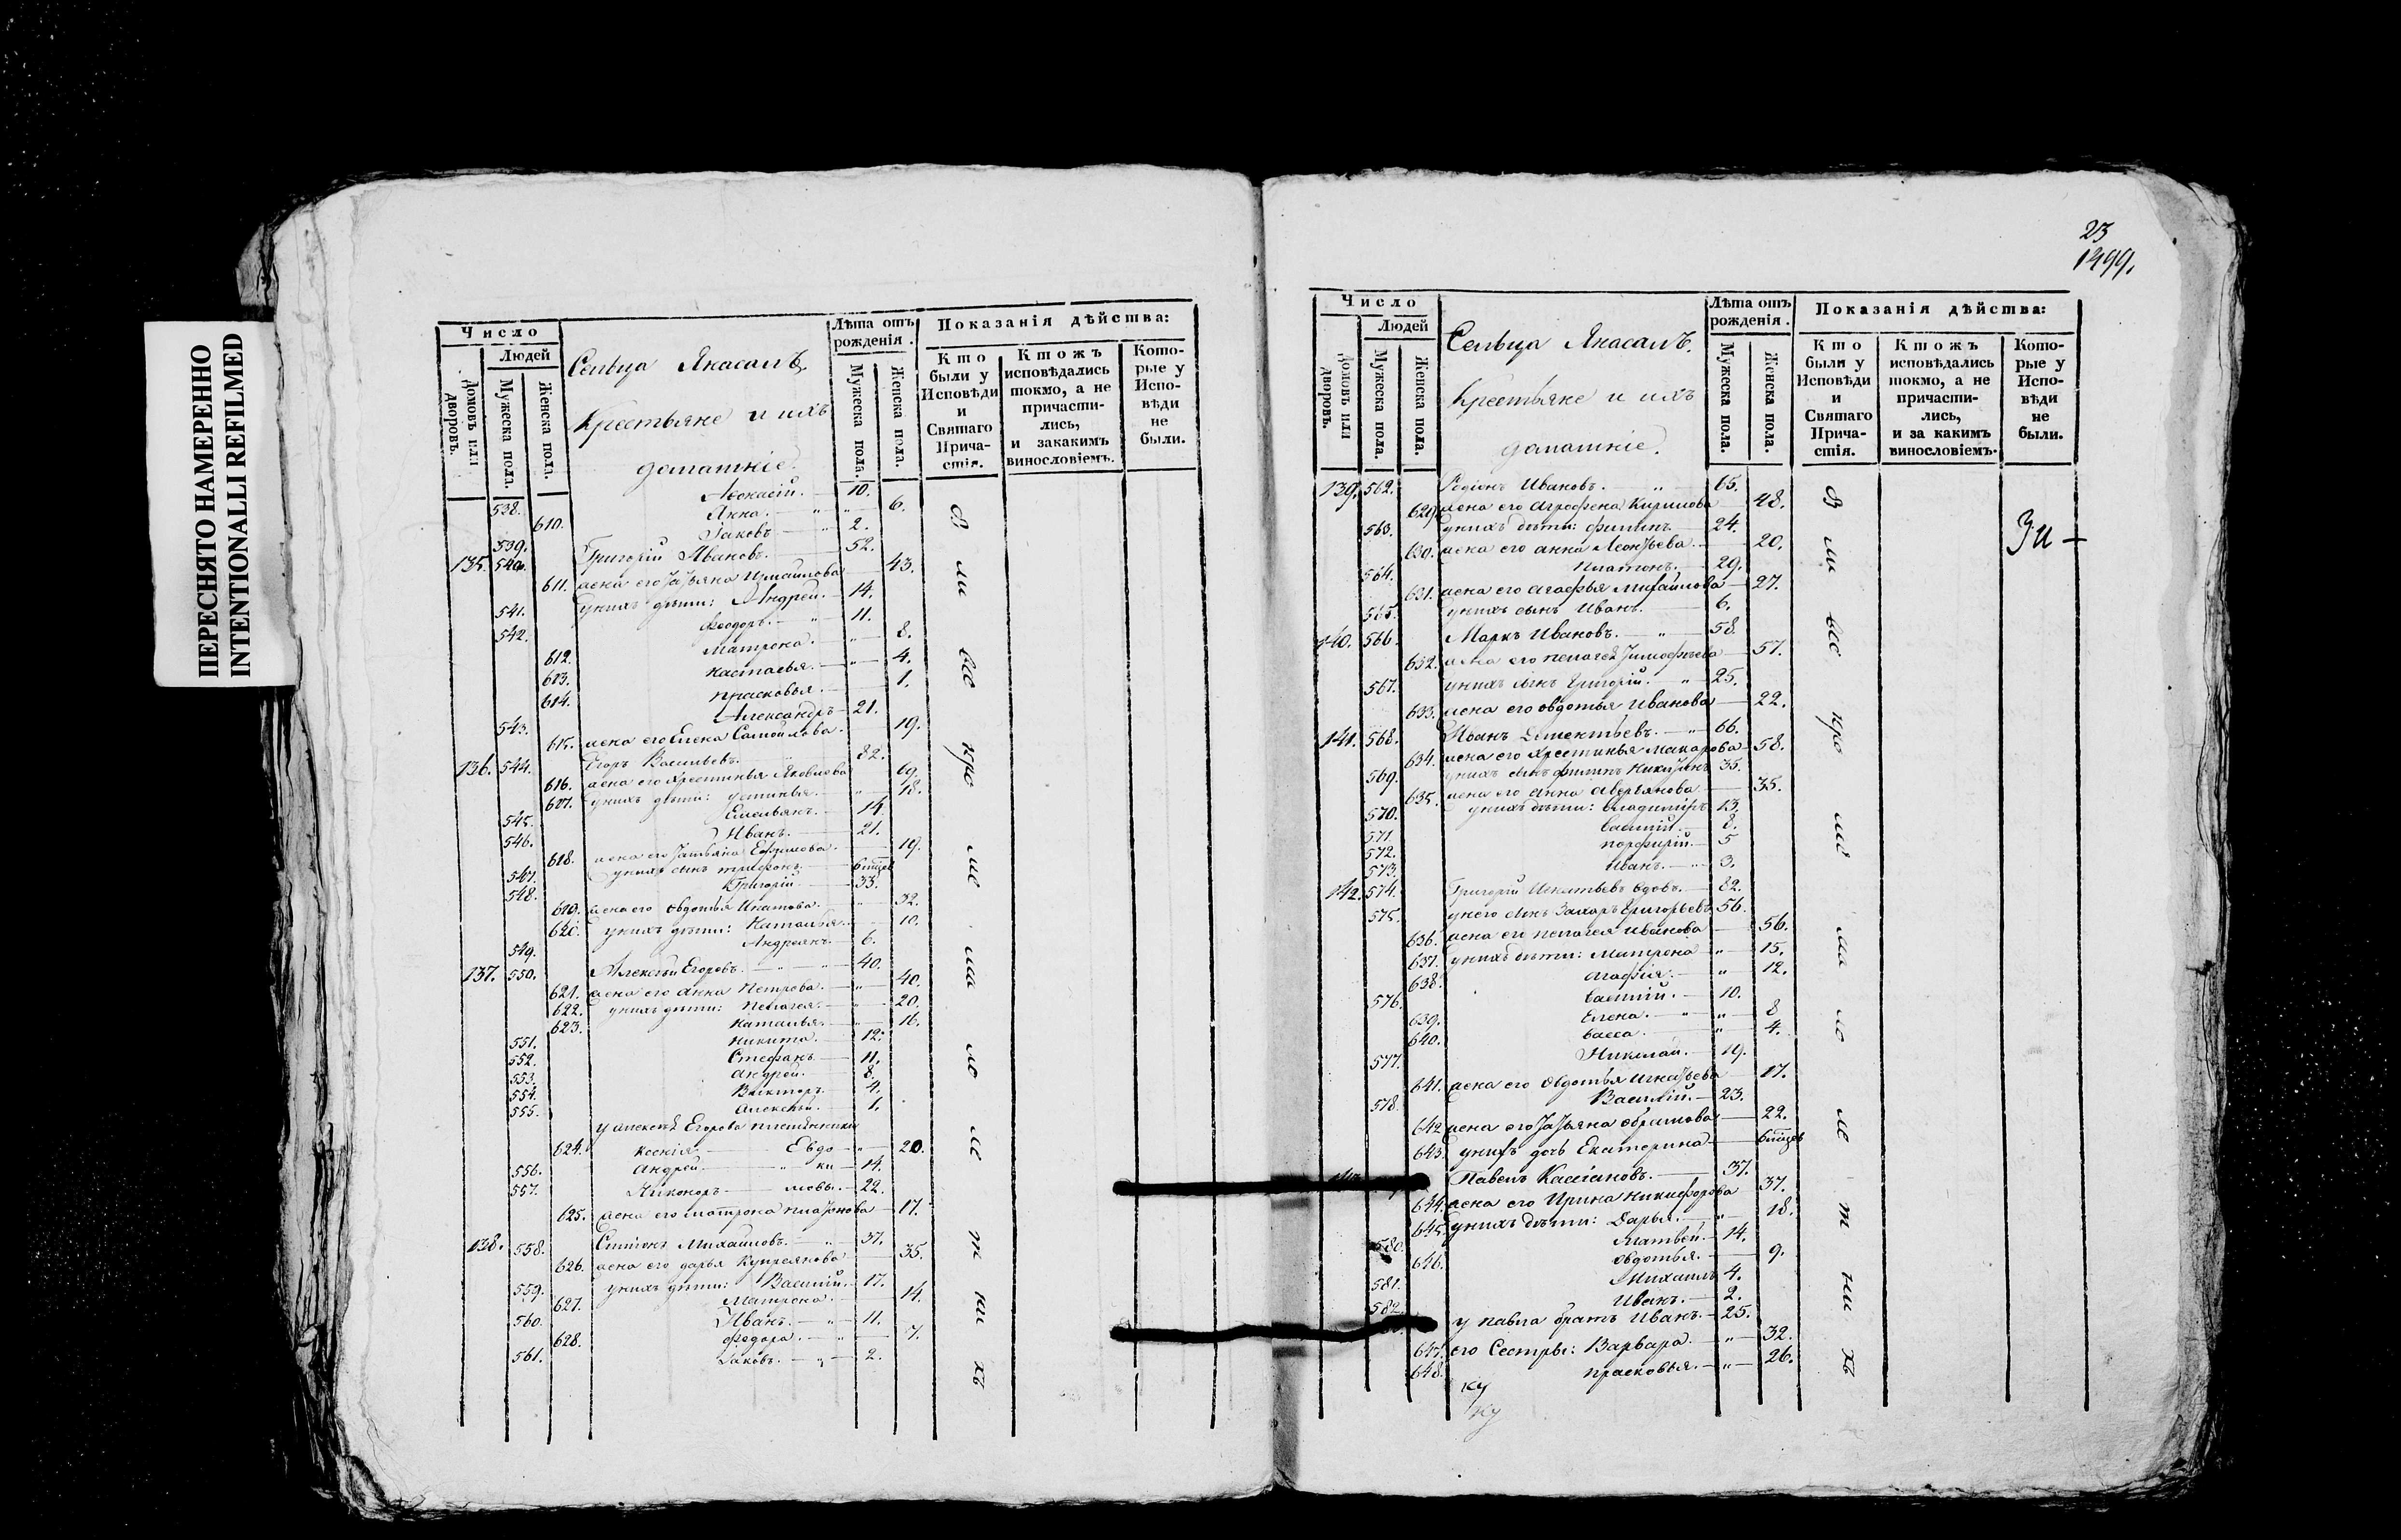 ПЕРЕСНЯТО НАМЕРЕННО
INTENTIONALLI REFILMED
Число
Домовъ или дворовъ.
Людей
Мужеска пола.
Женска пола.
Сельца Якасалъ.
Крестьяне и ихъ
домашніе.
Лѣта отъ рожденія.
Мужеска пола.
Женска пола.
Показанія дѣйства:
Кто были у Исповѣди и Святаго Прича-стія.
Ктожъ исповѣдались токмо, а не причасти-лись, и закакимъ винословіемъ.
Кото-рые у Испо-вѣди не были.
538. 10.
610. Анна. 6.
539. Іаковъ 2.
135. 540. Григорій Ивановъ. 52.
611. жена его Татьяна Измаилова 43.
541. у нихъ дѣти: Андрей. 14.
542. Феодоръ. 11.
612. Матрона. 8.
613. Настасья. 4.
614. Прасковья. 1.
543. Александръ 21.
615. жена его Елена Самойлова. 19.
136. 544. Егоръ Васильевъ. 82.
616. жена его Хрестинья Яковлева 69.
617. у нихъ дѣти: Устинья. 18.
545. Емельянъ. 14.
546. Иванъ. 21.
618. жена его Татьяна Ефимова. 19.
547. у нихъ сынъ Трифонъ.
548. Григорій 33.
619. жена его Овдотья Игнатова. 32.
620. у нихъ дѣти: Наталья. 10.
549. Андреянъ. 6.
137. 550. Алексѣй Егоровъ. 40.
621. жена его Анна Петрова. 40.
622. у нихъ дѣти: Пелагея. 20.
623. Наталья. 16.
551. Никита. 12.
552. Стефанъ. 11.
553. Андрей. 8.
554. Викторъ. 4.
555. Алексѣй. 1.
у Алексѣя Егорова племянники
624. Ксенія Евдо- 20.
556. Андрей ки- 14.
557. Никоноръ мовы. 22.
625. жена его Матрона Платонова 17.
138. 558. Симіонъ Михайловъ. 37.
626. жена его Дарья Купреянова 35.
559. у нихъ дѣти: Василій. 17.
627. Матрона. 14.
560. Иванъ. 11.
628. Федора. 7.
561. Іаковъ. 2.
23
1499.
Число
Домовъ или дворовъ.
Людей
Мужеска пола.
Женска пола.
Сельца Якасалъ.
Крестьяне и ихъ
домашніе.
Лѣта отъ рожденія.
Мужеска пола.
Женска пола.
Показанія дѣйства:
Кто были у Исповѣди и Святаго Прича-стія.
Ктожъ исповѣдались токмо, а не причасти-лись, и за какимъ винословіемъ.
Кото-рые у Испо-вѣди не были.
139. 562. Родіонъ Ивановъ. 65.
629. жена его Агрофена Кирилова 48.
563. у нихъ дѣти: Филипъ. 24.
630. жена его Анна Леонтьева. 20.
564. Платонъ. 29.
631. жена его Агафья Михайлова 27.
565. у нихъ сынъ Иванъ. 6.
140. 566. Маркъ Ивановъ. 58.
632. жена его Пелагея Тимофѣева 57.
567. у нихъ сынъ Григорій. 25.
633. жена его Овдотья Иванова 22.
141. 568. Иванъ Дементьевъ. 66.
634. жена его Хрестинья Макарова 58.
569. у нихъ сынъ Филипъ 35.
635. жена его Анна Аверьянова 35.
570. у нихъ дѣти: Владимиръ 13.
571. Василій. 8.
572. Порфирій. 5
573. Иванъ. 3.
142. 574. Григорій Игнатьевъ вдовъ. 82.
575. у него сынъ Захаръ Григорьевъ 56.
636. жена его Пелагея Иванова 56.
637. у нихъ дѣти: Матрона 15.
638. Агафія. 12.
576. Василій. 10.
639. Елена. 8
640. Васса. 4.
577. Николай. 19.
641. жена его Овдотья Игнатьева 17.
578. Василій. 23.
642 жена его Татьяна Абрамова 22.
643. у нихъ дочь Екатерина
Павелъ Касіановъ. 37.
644. жена его Ирина Никифорова 37.
645. у нихъ дѣти: Дарья. 18.
580. Матвей. 14.
646. Овдотья. 9.
581. Михаилъ 4.
582. Иванъ. 2.
у Павла братъ Иванъ. 25.
647. его Сестры: Варвара. 32.
648. Прасковья. 26.